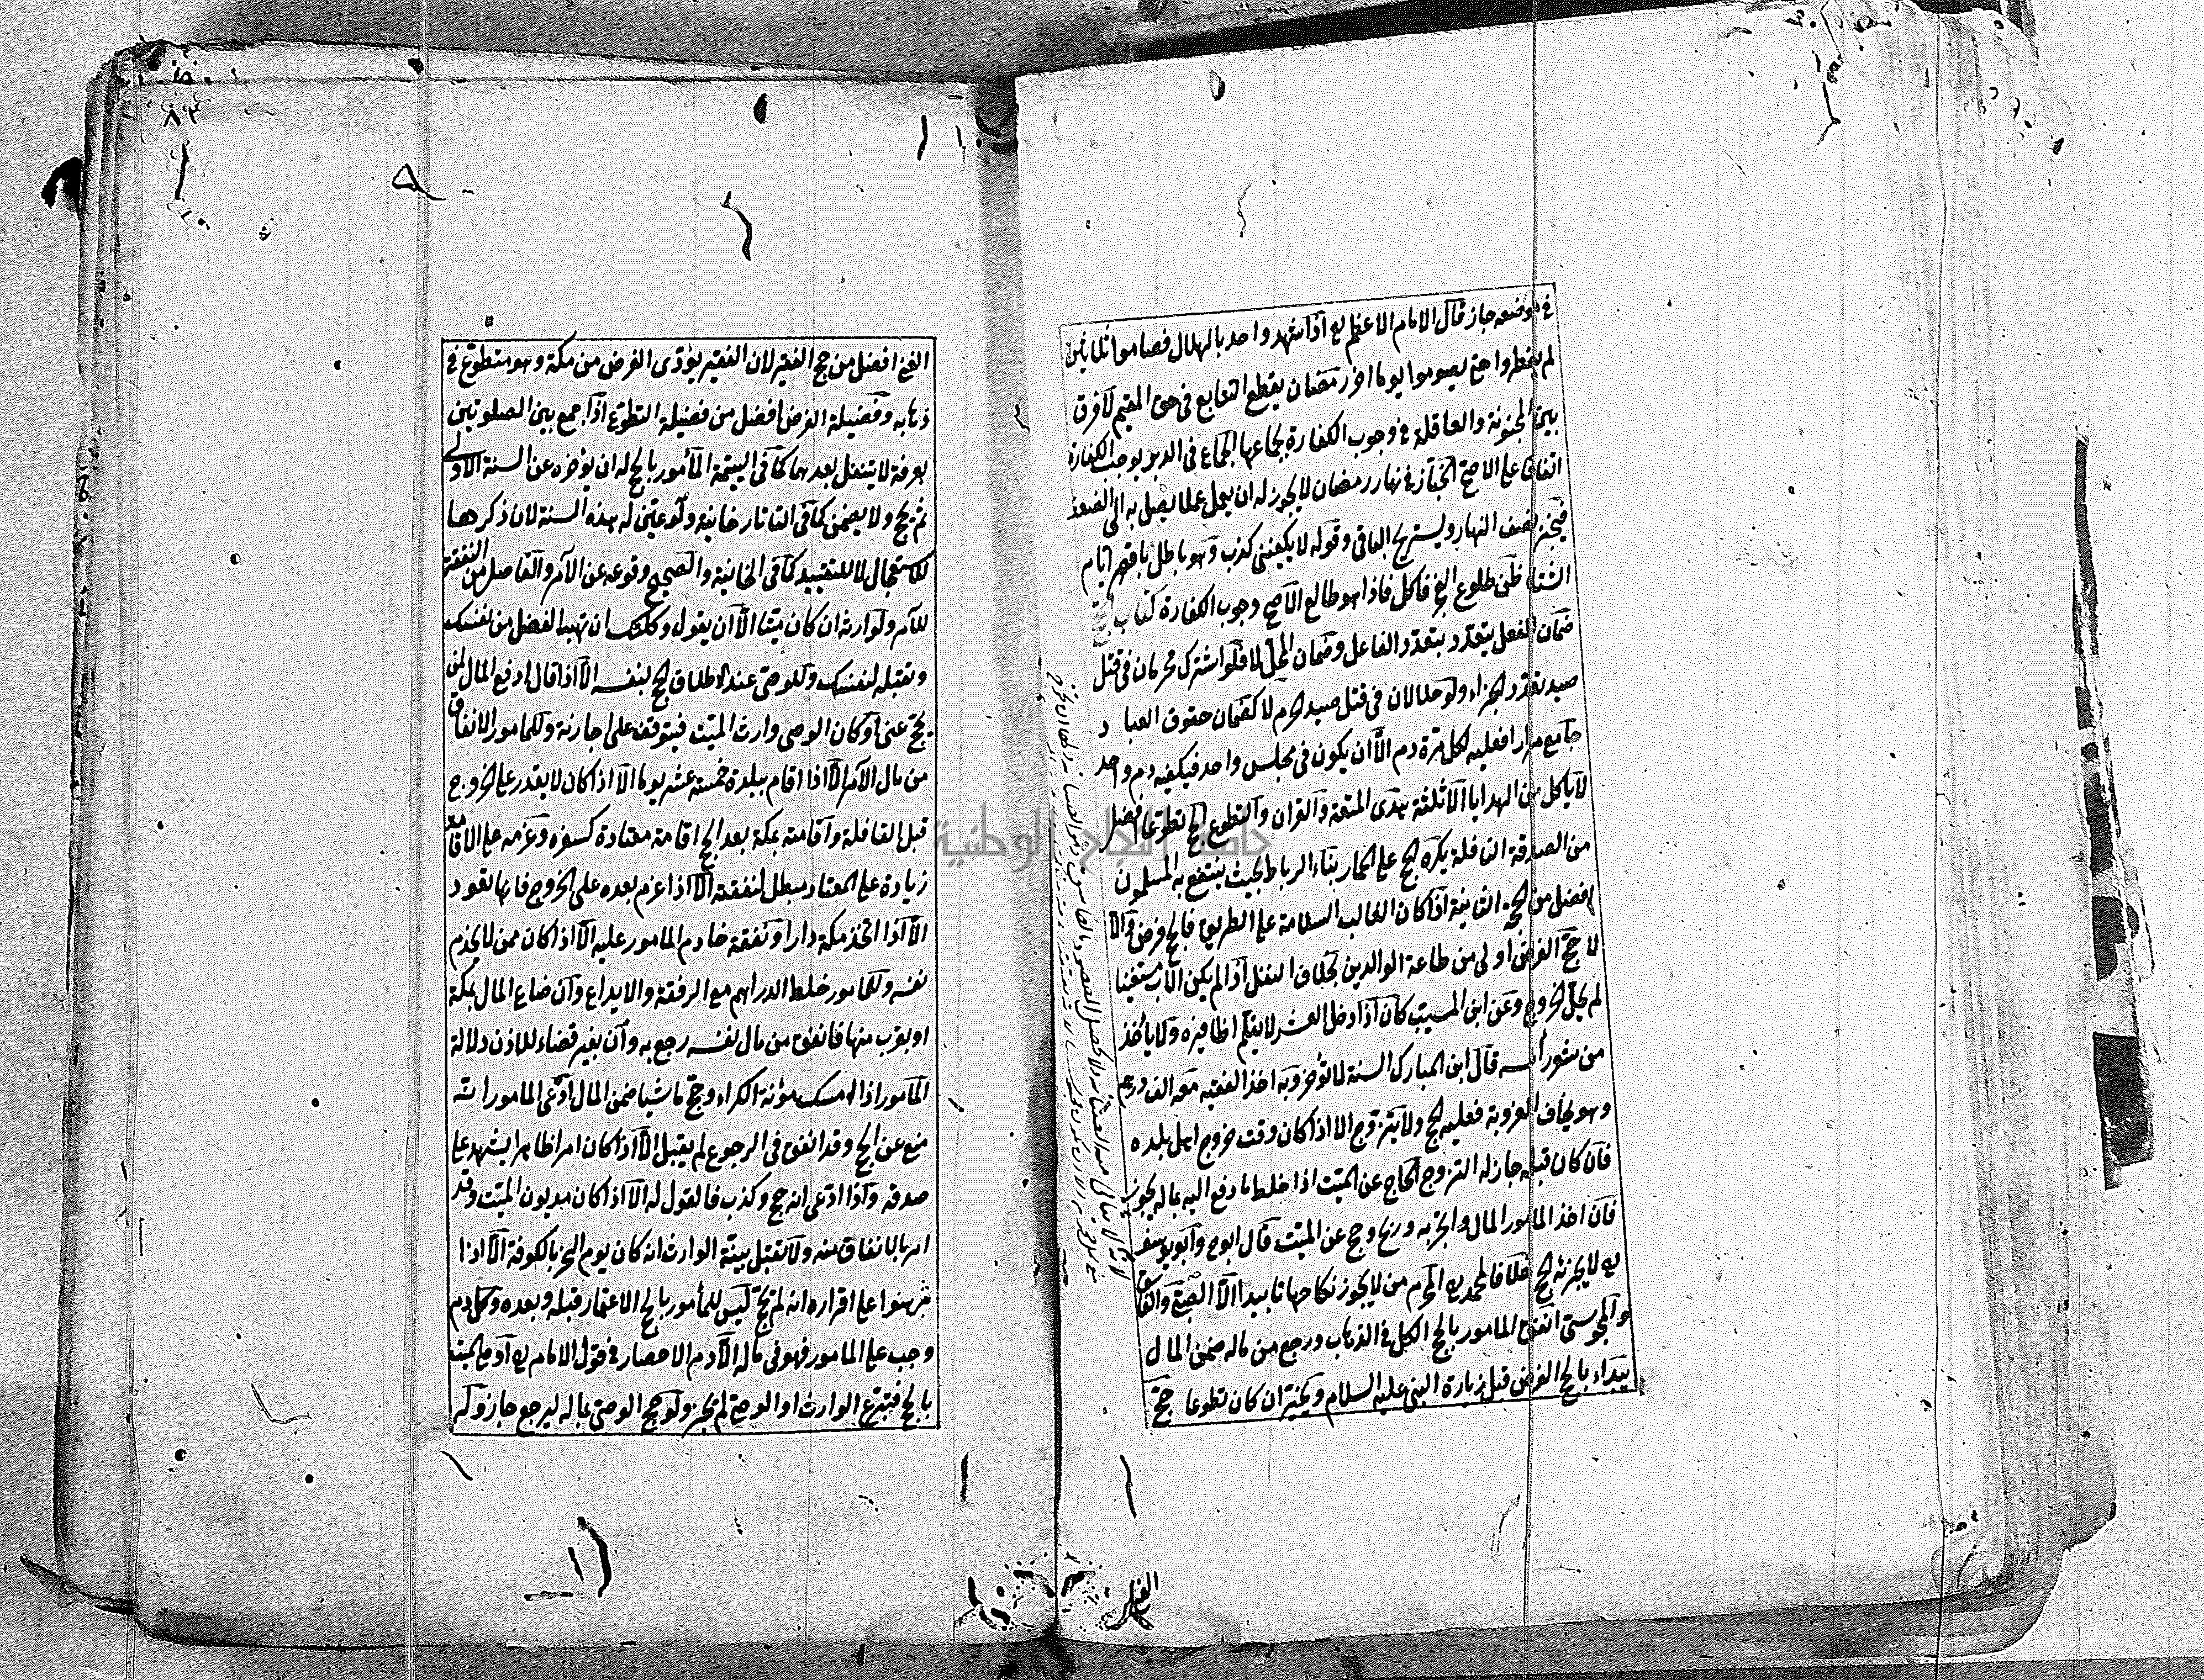 في موضعه جاز قال الامام الاعظم رح اذا شهد واحد بالهلال فصاموا ثلاثين
لم يفطروا حتى يصوموا يوما اخر رمضان يقطع التتابع في حق المقيم لا فرق
بين المجنونة والعاقلة في وجوب الكفارة بجماعها الجماع في الدبر يوجب الكفارة
اتفاقا على الاصح الخباز في نهار رمضان لا يجوز له ان يعمل عملا يصل به الى الضعف
فيخبز نصف النهار ويستريح الباقي وقوله لا يكفيني كذب وهو باطل باقصر ايام
الشتاء ظن طلوع الفجر فاكل فاذا هو طالع الاصح وجوب الكفارة كتاب الحج
ضمان الفعل يتعدد بتعدد الفاعل وضمان المحل لا فلو اشترك محرمان في قتل
صيد تعدد الجزاء ولو حلالان في قتل صيد الحرم لا كضمان حقوق العباد
جامع مرارا فعليه لكل مرة دم الا ان يكون في مجلس واحد فيكفيه دم واحد
لا ياكل من الهدايا الا ثلثة هدى المتعة والقران والتطوع الحج تطوعا افضل
من الصدقة النافلة يكره الحج على الحمار بناء الرباط بحيث ينتفع به المسلمون
افضل من الحجة الثانية اذا كان الغالب السلامة على الطريق فالحج فرض والا
لا حج الفرض اولى من طاعة الوالدين بخلاف النفل اذا لم يكن الاب مستغنيا
لم يحل الخروج وعن ابن المسيب كان اذا دخل العشر لا يقلم اظافيره ولا ياخذ
من شعر راسه قال ابن المبارك السنة لا تؤخر وبه اخذ الفقيه معه الف درهم
وهو يخاف العزوبة فعليه الحج ولا يتزوج الا اذا كان وقت خروج اهل بلده
فان كان قبله جاز له التزوج الحاج عن الميت اذا خلط ما دفع اليه بماله يجوز
فان اخذ المامور المال واتجر به وربح وحج عن الميت قال ابو ح وابو يوسف
رح لا يجزئه الحج خلافا لمحمد رح المحرم من لا يجوز نكاحها تابيدا الا الصبي والفاسق
والمجوسي انفق المامور بالحج الكل في الذهاب ورجع من ماله ضمن المال
يبداء بالحج الفرض قبل زيارة النبي عليه السلام ويخير ان كان تطوعا حج
الغني
الغني افضل من حج الفقير لان الفقير يؤدى الفرض من مكة وهو متطوع في
ذهابه وفضيلة الفرض افضل من فضيلة التطوع اذا جمع بين الصلوتين
بعرفة لا يتنفل بعدهما كما في اليتيمة المأمور بالحج له ان يؤخره عن السنة الاولى
ثم يحج ولا يضمن كما في التاتارخانية ولو عين له هذه السنة لان ذكرها
للاستعجال لا للتقييد كما في الخانية والصحيح وقوعه عن الآمر والفاضل من النفقة
للآمر ولوارثه ان كان ميتا الا ان يقول وكلتك ان تهب الفضل من نفسك
وتقبله لنفسك وللوصي عند الاطلاق الحج بنفسه الا اذا قال ادفع المال لمن
يحج عني او كان الوصي وارث الميت فيتوقف على اجازته وللمامور الانفاق
من مال الآمر الا اذا اقام ببلدة خمسة عشر يوما الا اذا كان لا يقدر على الخروج
قبل القافلة واقامته بمكة بعد الحج اقامة معتادة كسفره وعزمه على الاقامة
زيادة على المعتاد مبطل لنفقته الا اذا عزم بعده على الخروج فانها تعود
الا اذا اتخذ مكة دارا ونفقة خادم المامور عليه الا اذا كان ممن لا يخدم
نفسه وللمامور خلط الدراهم مع الرفقة والايداع وان ضاع المال بمكة
او بقرب منها فانفق من مال نفسه رجع به وان بغير قضاء للاذن دلالة
المامور اذا امسك مؤنة الكراء وحج ماشيا ضمن المال ادعى المامور انه
منع عن الحج وقد انفق في الرجوع لم يقبل الا اذا كان امرا ظاهرا يشهد على
صدقه واذا ادعى انه حج وكذب فالقول له الا اذا كان مديون الميت وقد
امر بالانفاق منه ولا تقبل بينة الوارث انه كان يوم النحر بالكوفة الا اذا
برهنوا على اقراره انه لم يحج ليس للمأمور بالحج الاعتمار قبله وبعده وكل دم
وجب على المامور فهو في ماله الا دم الاحصار في قول الامام رح اوصى الميت
بالحج فتبرع الوارث او الوصي لم يجز ولو حج الوصي بماله ليرجع جاز وله
جامعة النجاح الوطنية